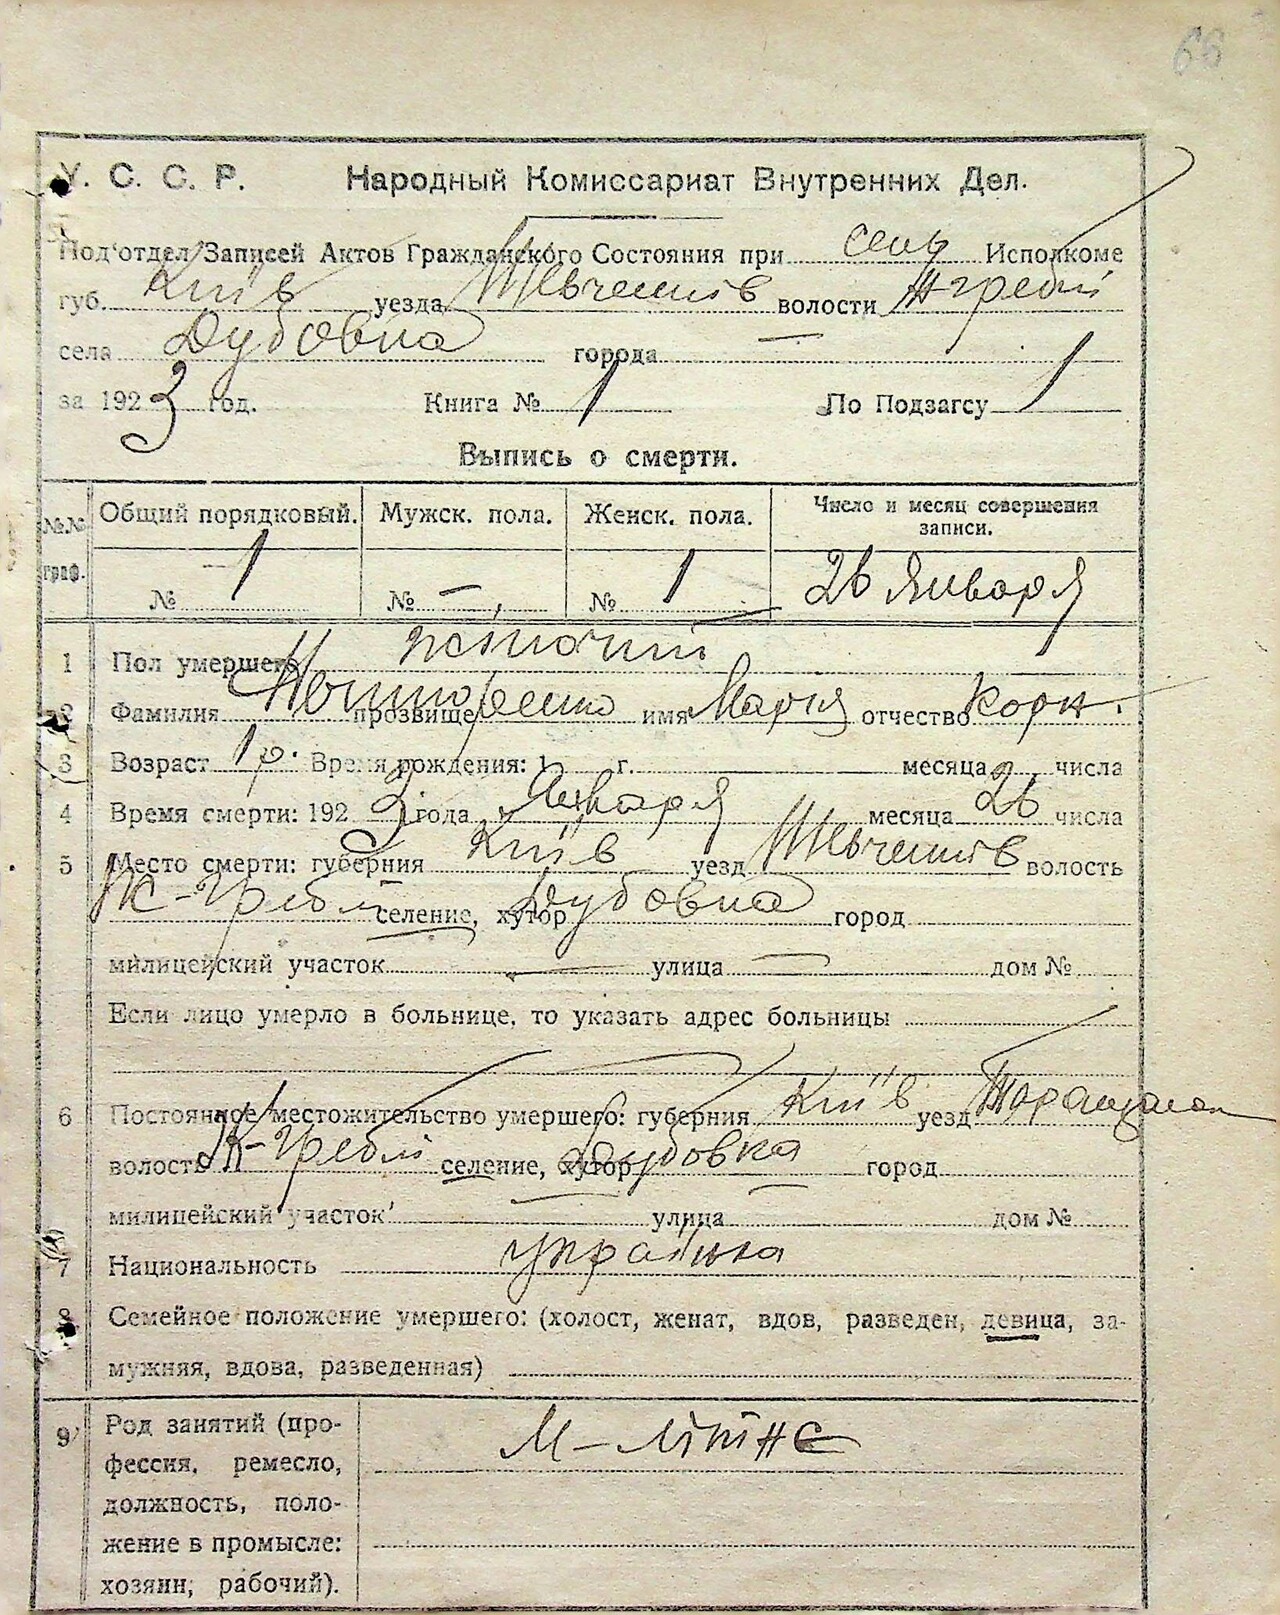 68
У. С. С. Р. Народный Комиссариат Внутренних Дел.
Под'отдел Записей Актов Гражданского Состояния при сель Исполкоме
губ. Київ уезда Шевченків волости Ж-Гребл
села Дубовка города —
за 1923 год. Книга № 1 По Подзагсу 1
Выпись о смерти.
№.№ граф. Общий порядковый. Мужск. пола. Женск. пола. Число и месяц совершения записи.
№ 1 № — № 1 26 Января
1 Пол умершего жіночий
2 Фамилия прозвище имя Мария отчество Корн.
3 Возраст 1 р. Время рождения: 1 г. месяца числа
4 Время смерти: 1923 года Января месяца 26 числа
5 Место смерти: губерния Київ уезд Шевченків волость
Ж-Гребл селение, хутор Дубовка город
милицейский участок — улица — дом №
Если лицо умерло в больнице, то указать адрес больницы
6 Постоянное местожительство умершего: губерния Київ уезд Таращан
волость Ж-Гребл селение, хутор Дубовка город
милицейский участок — улица — дом №
7 Национальность
8 Семейное положение умершего: (холост, женат, вдов, разведен, девица, за-
мужняя, вдова, разведенная)
9 Род занятий (про-
фессия, ремесло,
должность, поло-
жение в промысле:
хозяин, рабочий).
М-літнє